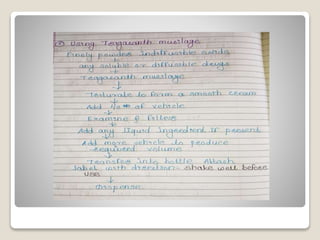 Using Tragacanth mucilage
Finely powder indiffusible solids
↓
any soluble or diffusible drugs
↓
Tragacanth mucilage
↓
Triturate to form a smooth cream
↓
Add of vehicle
↓
Examine & filters
↓
Add any liquid ingredient if present
↓
Add more vehicle to produce
required volume
↓
Transfer into bottle Attach
label with direction- shake well before
use
↓
dispense